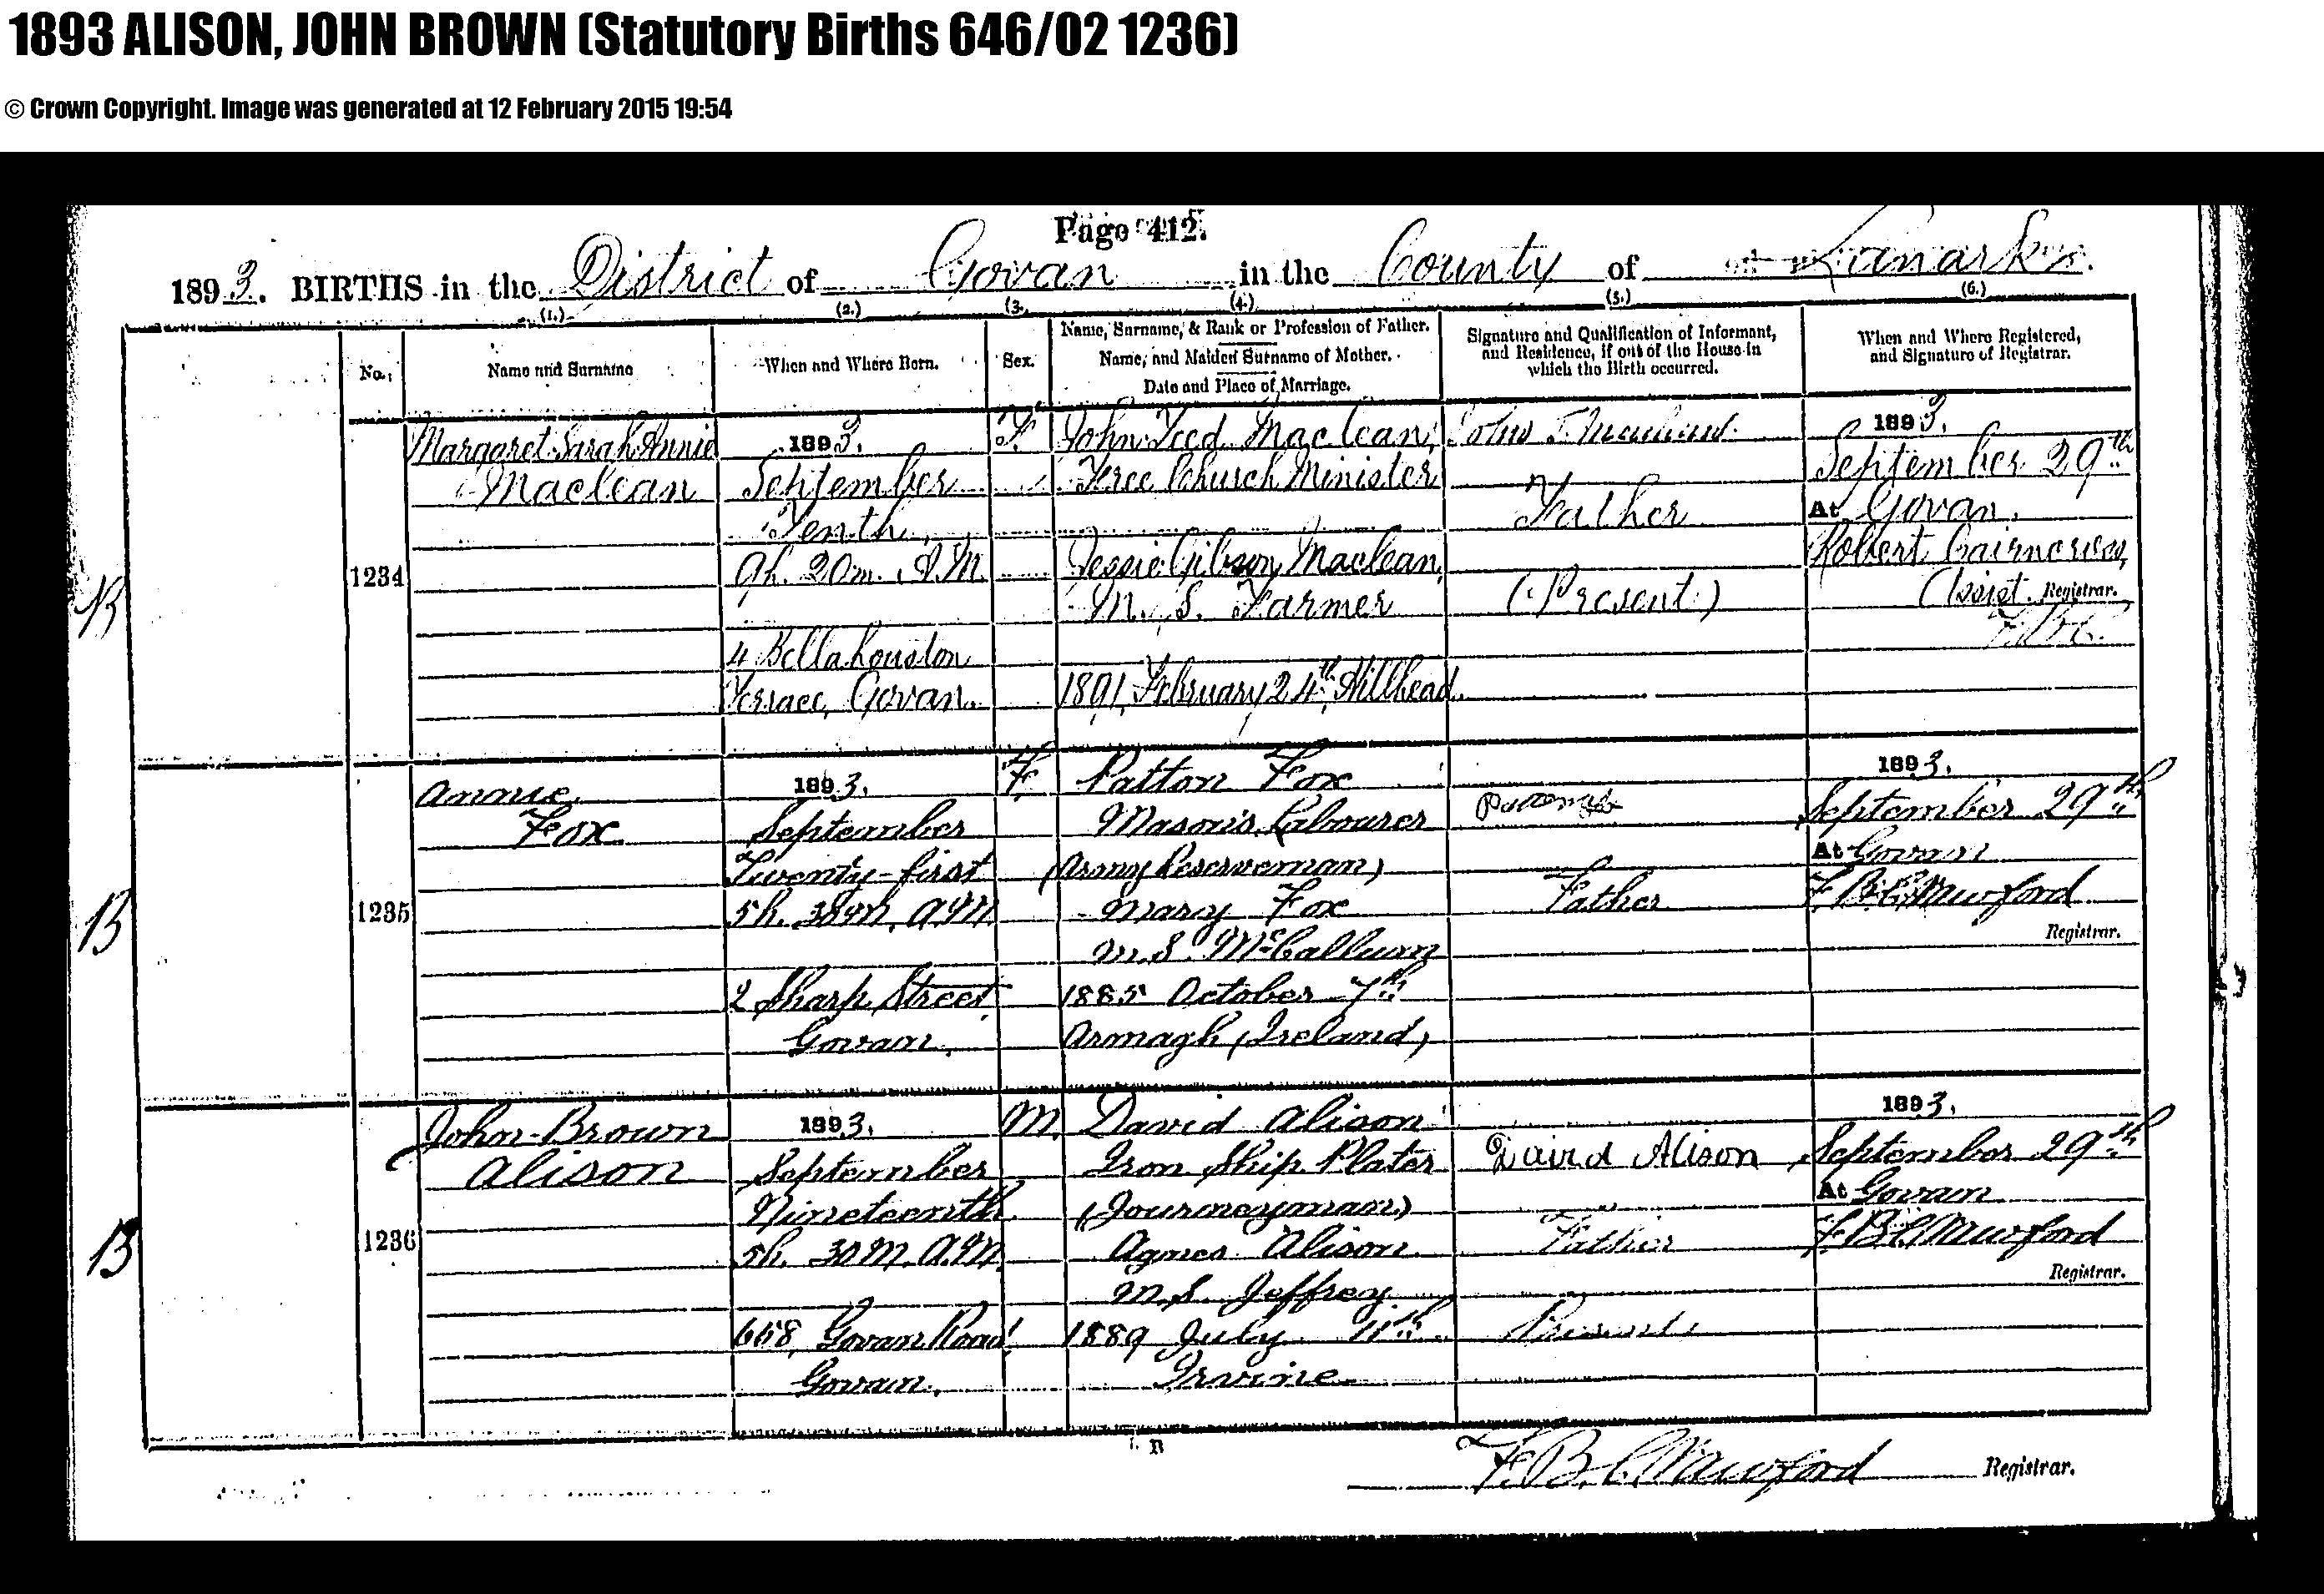 1893 ALISON, JOHN BROWN (Statutory Births 646/02 1236)
© Crown Copyright. Image was generated at 12 February 2015 19:54
Page 412.
1893. BIRTHS in the District of Govan in the County of Lanark
(1.) (2.) (3. (4.) (5.) (6.)
No. Name and Surname When and Where Born. Sex.
Name, Surname, & Rank or Profession of Father.
Name, and Maiden Surname of Mother.
Date and Place of Marriage.
Signature and Qualification of Informant,
and Residence, if out of the House in
which the Birth occurred.
When and Where Registered,
and Signature of Registrar.
1234
Margaret Sarah Annie
Maclean
1893.
September
Tenth,
9h. 20m. A.M.
4 Bellahouston
Terrace, Govan.
F.
John Maclean,
Free Church Minister
Jessie Gibson Maclean,
M. S. Farmer
1891, February 24th, Hillhead.
Father
(Present)
1893.
September 29th
At Govan.
Robert
Assist. Registrar.
B
1235
Annie
Fox
1893.
September
Twenty-first
5h. A.M.
2 Sharp Street
Govan.
F.
Patton Fox
Mason's Labourer
(Army Reserveman)
Mary Fox
M.S. McCallum
1885 October 7th
Armagh (Ireland)
Father
1893.
September 29th
At Govan
F. B. C. Mawford
Registrar.
B
1236
John Brown
Alison
1893.
September
Nineteenth
5h. 30m. A.M.
658, Govan Road
Govan.
M.
David Alison
Iron Ship Plater
(Journeyman)
Agnes Alison
M.S. Jeffrey
1889 July 11th
Irvine
David Alison
Father
Present
1893.
September 29th
At Govan
F. B. C. Mawford
Registrar.
B
F. B. C. Mawford Registrar.